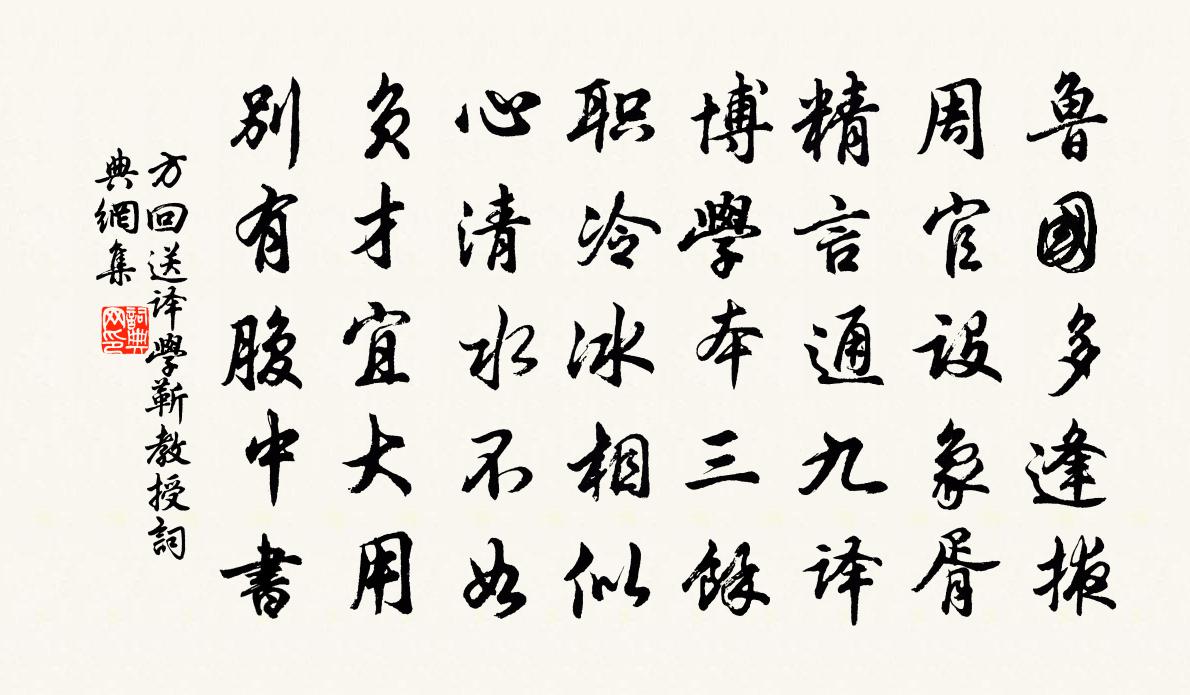 魯國多逢掖
周官設象胥
精言通九译
博學本三餘
职冷冰相似
心清水不如
负才宜大用
别有腹中書
方回送译學靳教授詞
典網集
詞典
网印